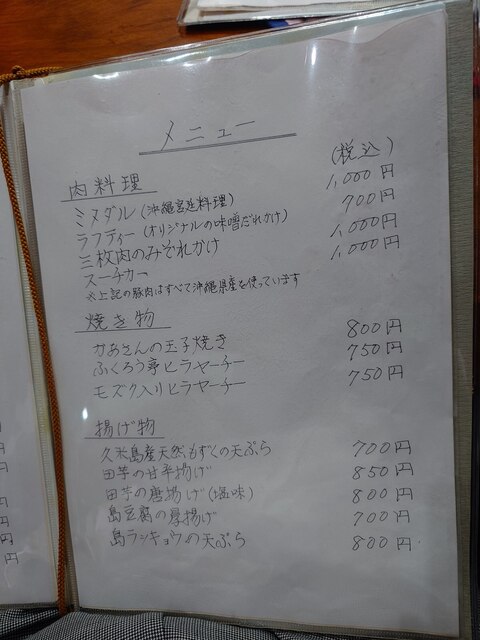 メニュー
(税込)
肉料理
ミヌダル(沖縄宮廷料理) 1,000円
ラフティー(オリジナルの味噌だれかけ) 700円
三枚肉のみぞれかけ 1,000円
スーチカー 1,000円
※上記の豚肉はすべて沖縄県産を使っています
焼き物
かあさんの玉子焼き 800円
ふくろう亭ヒラヤーチー 750円
モズク入りヒラヤーチー 750円
揚げ物
久米島産天然もずくの天ぷら 700円
田芋の甘辛揚げ 850円
田芋の唐揚げ(塩味) 800円
島豆腐の厚揚げ 700円
島ラッキョウの天ぷら 800円
円
円
円
円
円
円